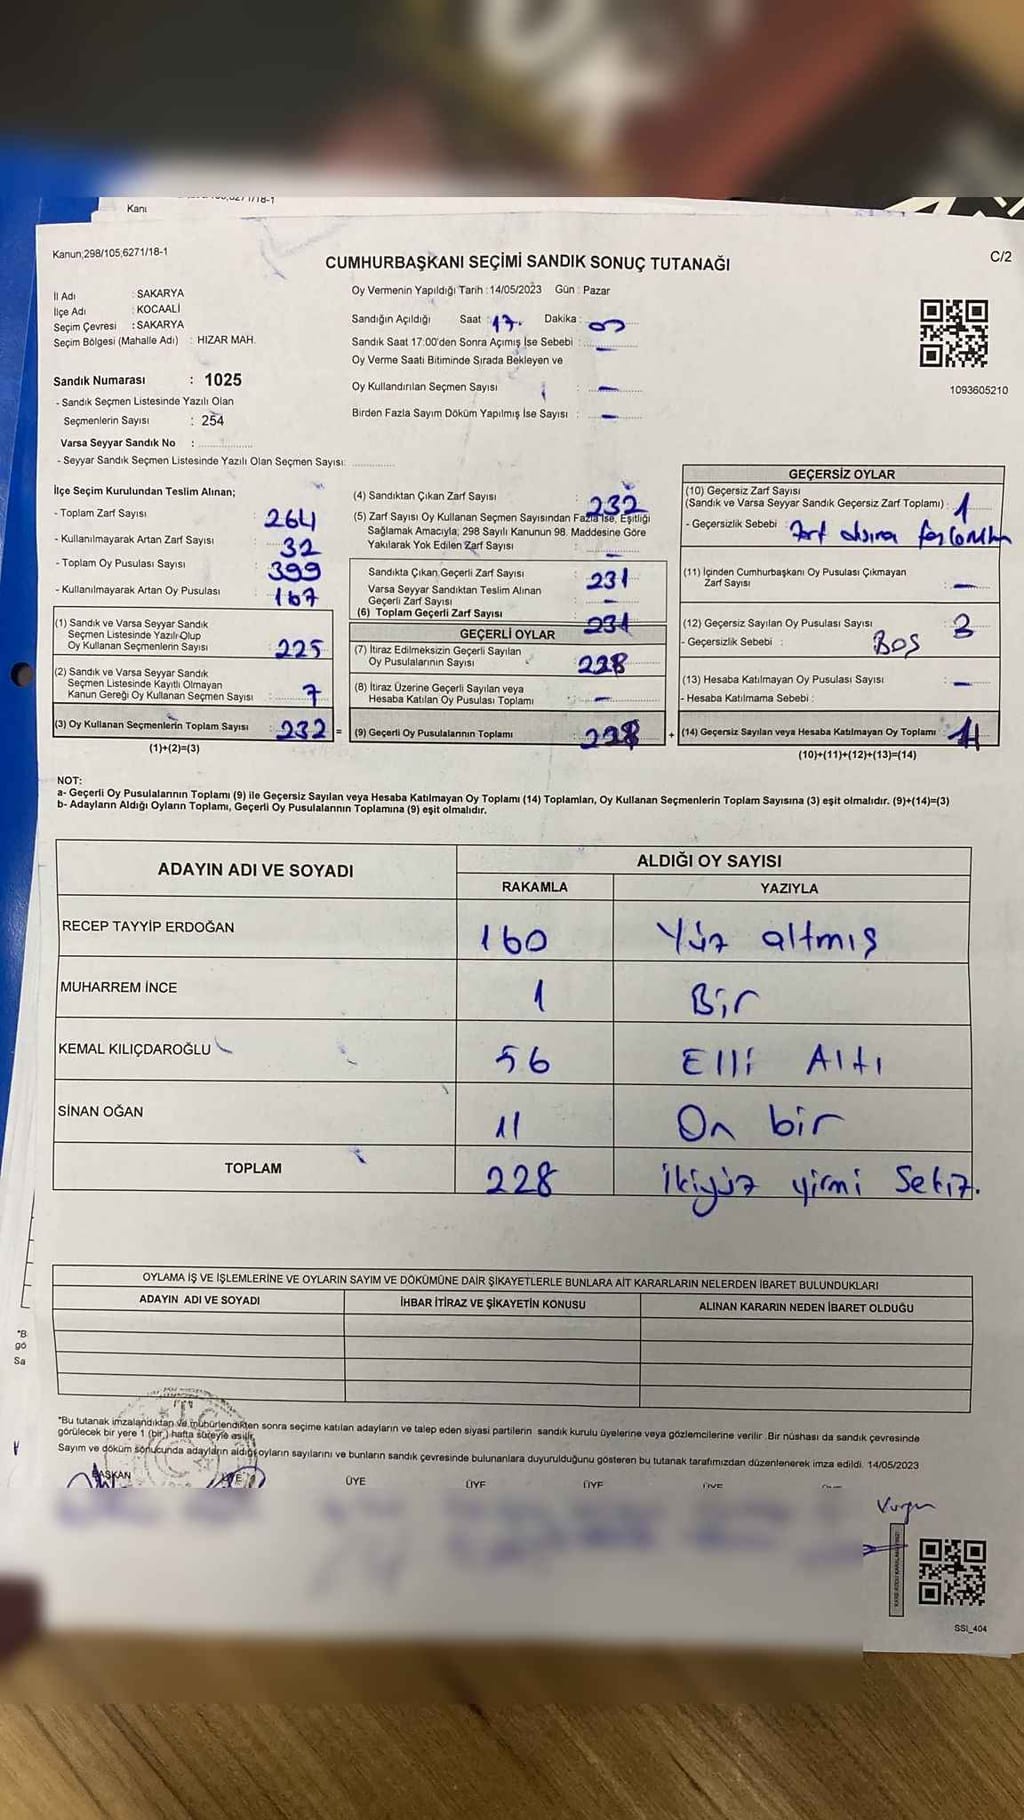 Kanu
Kanun;298/105;6271/18-1
C/2
CUMHURBAŞKANI SEÇİMİ SANDIK SONUÇ TUTANAĞI
İl Adı : SAKARYA
İlçe Adı : KOCAALİ
Seçim Çevresi : SAKARYA
Seçim Bölgesi (Mahalle Adı) : HIZAR MAH.
Oy Vermenin Yapıldığı Tarih : 14/05/2023 Gün : Pazar
Sandığın Açıldığı Saat : 17. Dakika : 00
Sandık Saat 17:00'den Sonra Açımış İse Sebebi : —
Oy Verme Saati Bitiminde Sırada Bekleyen ve
Oy Kullandırılan Seçmen Sayısı : —
Birden Fazla Sayım Döküm Yapılmış İse Sayısı : —
1093605210
Sandık Numarası : 1025
- Sandık Seçmen Listesinde Yazılı Olan
Seçmenlerin Sayısı : 254
Varsa Seyyar Sandık No :
- Seyyar Sandık Seçmen Listesinde Yazılı Olan Seçmen Sayısı:
İlçe Seçim Kurulundan Teslim Alınan;
- Toplam Zarf Sayısı : 264
- Kullanılmayarak Artan Zarf Sayısı : 32
- Toplam Oy Pusulası Sayısı : 399
- Kullanılmayarak Artan Oy Pusulası : 167
(1) Sandık ve Varsa Seyyar Sandık
Seçmen Listesinde Yazılı Olup
Oy Kullanan Seçmenlerin Sayısı : 225
(2) Sandık ve Varsa Seyyar Sandık
Seçmen Listesinde Kayıtlı Olmayan
Kanun Gereği Oy Kullanan Seçmen Sayısı : 7
(3) Oy Kullanan Seçmenlerin Toplam Sayısı : 232 =
(1)+(2)=(3)
(4) Sandıktan Çıkan Zarf Sayısı : 232
(5) Zarf Sayısı Oy Kullanan Seçmen Sayısından Fazla İse, Eşitliği
Sağlamak Amacıyla; 298 Sayılı Kanunun 98. Maddesine Göre
Yakılarak Yok Edilen Zarf Sayısı : —
Sandıkta Çıkan Geçerli Zarf Sayısı : 231
Varsa Seyyar Sandıktan Teslim Alınan
Geçerli Zarf Sayısı : —
(6) Toplam Geçerli Zarf Sayısı : 231
GEÇERLİ OYLAR
(7) İtiraz Edilmeksizin Geçerli Sayılan
Oy Pusulalarının Sayısı : 228
(8) İtiraz Üzerine Geçerli Sayılan veya
Hesaba Katılan Oy Pusulası Toplamı : —
(9) Geçerli Oy Pusulalarının Toplamı : 228 +
GEÇERSİZ OYLAR
(10) Geçersiz Zarf Sayısı
(Sandık ve Varsa Seyyar Sandık Geçersiz Zarf Toplamı) : 1
- Geçersizlik Sebebi : Zarf
(11) İçinden Cumhurbaşkanı Oy Pusulası Çıkmayan
Zarf Sayısı : —
(12) Geçersiz Sayılan Oy Pusulası Sayısı : 3
- Geçersizlik Sebebi : BOŞ
(13) Hesaba Katılmayan Oy Pusulası Sayısı : —
- Hesaba Katılmama Sebebi :
(14) Geçersiz Sayılan veya Hesaba Katılmayan Oy Toplamı :
(10)+(11)+(12)+(13)=(14)
NOT:
a- Geçerli Oy Pusulalarının Toplamı (9) ile Geçersiz Sayılan veya Hesaba Katılmayan Oy Toplamı (14) Toplamları, Oy Kullanan Seçmenlerin Toplam Sayısına (3) eşit olmalıdır. (9)+(14)=(3)
b- Adayların Aldığı Oyların Toplamı, Geçerli Oy Pusulalarının Toplamına (9) eşit olmalıdır.
ADAYIN ADI VE SOYADI
ALDIĞI OY SAYISI
RAKAMLA YAZIYLA
RECEP TAYYİP ERDOĞAN 160 Yüz altmış
MUHARREM İNCE 1 Bir
KEMAL KILIÇDAROĞLU 56 Elli Altı
SİNAN OĞAN 11 On bir
TOPLAM 228 ikiyüz yirmi Sekiz.
OYLAMA İŞ VE İŞLEMLERİNE VE OYLARIN SAYIM VE DÖKÜMÜNE DAİR ŞİKAYETLERLE BUNLARA AİT KARARLARIN NELERDEN İBARET BULUNDUKLARI
ADAYIN ADI VE SOYADI İHBAR İTİRAZ VE ŞİKAYETİN KONUSU ALINAN KARARIN NEDEN İBARET OLDUĞU
"B
gö
Sa
"Bu tutanak imzalandıktan ve mühürlendikten sonra seçime katılan adayların ve talep eden siyasi partilerin sandık kurulu üyelerine veya gözlemcilerine verilir .Bir nüshası da sandık çevresinde
görülecek bir yere 1 (bir) hafta süreyle asılır.
Sayım ve döküm sonucunda adayların aldığı oyların sayılarını ve bunların sandık çevresinde bulunanlara duyurulduğunu gösteren bu tutanak tarafımızdan düzenlenerek imza edildi. 14/05/2023
BAŞKAN ÜYE ÜYE ÜYE ÜYE ÜYE
SSI_404